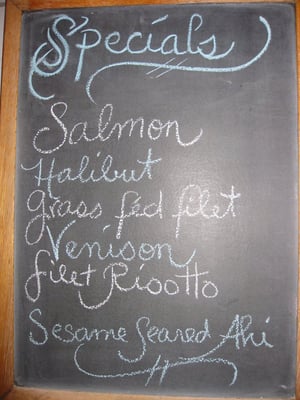 Specials
Salmon
Halibut
Grass fed filet
Venison
filet Risotto
Sesame Seared Ahi